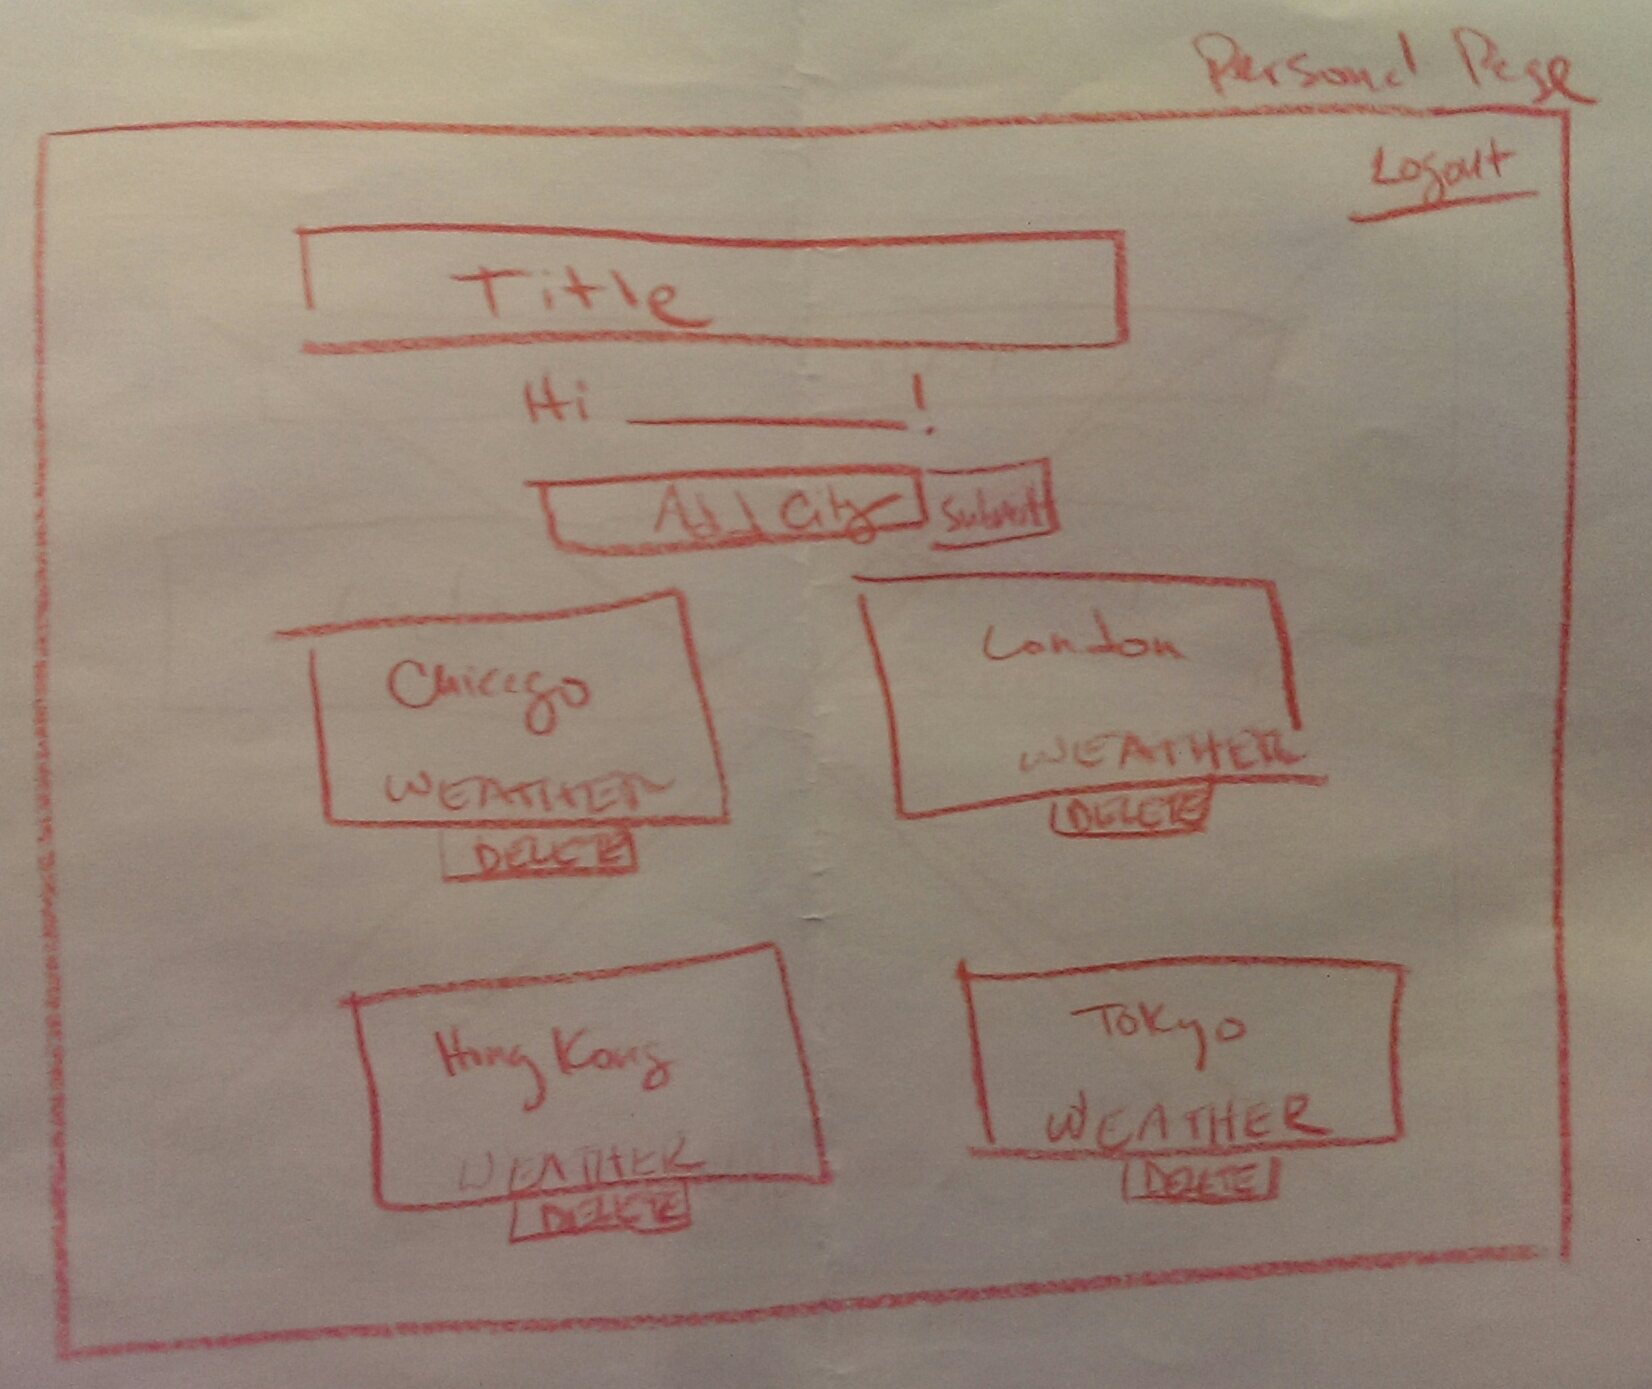 Personal Page
Logout
Title
Hi ________!
Add City Submit
Chicago
WEATHER
DELETE
London
WEATHER
DELETE
Hong Kong
WEATHER
DELETE
Tokyo
WEATHER
DELETE